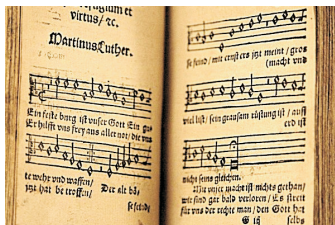 refugium et
virtus/ ꝛc.
Martinus Luther.
Ein feste burg ist vnser Gott Ein gu
Er hilfft vns frey aus aller not/ die vns
te wehr vnd waffen/
itzt hat be troffen/ Der alt bö/
se feinde
se feind/ mit ernst ers jtzt meint/ gros
(macht vnd
viel list/ sein grausam rüstung ist/ auff
erd ist
nicht seins gleichen.
Mit vnser macht ist nichts gethan/
wir sind gar bald verloren/ Es streit
fur vns der rechte man/ den Gott hat
selbs